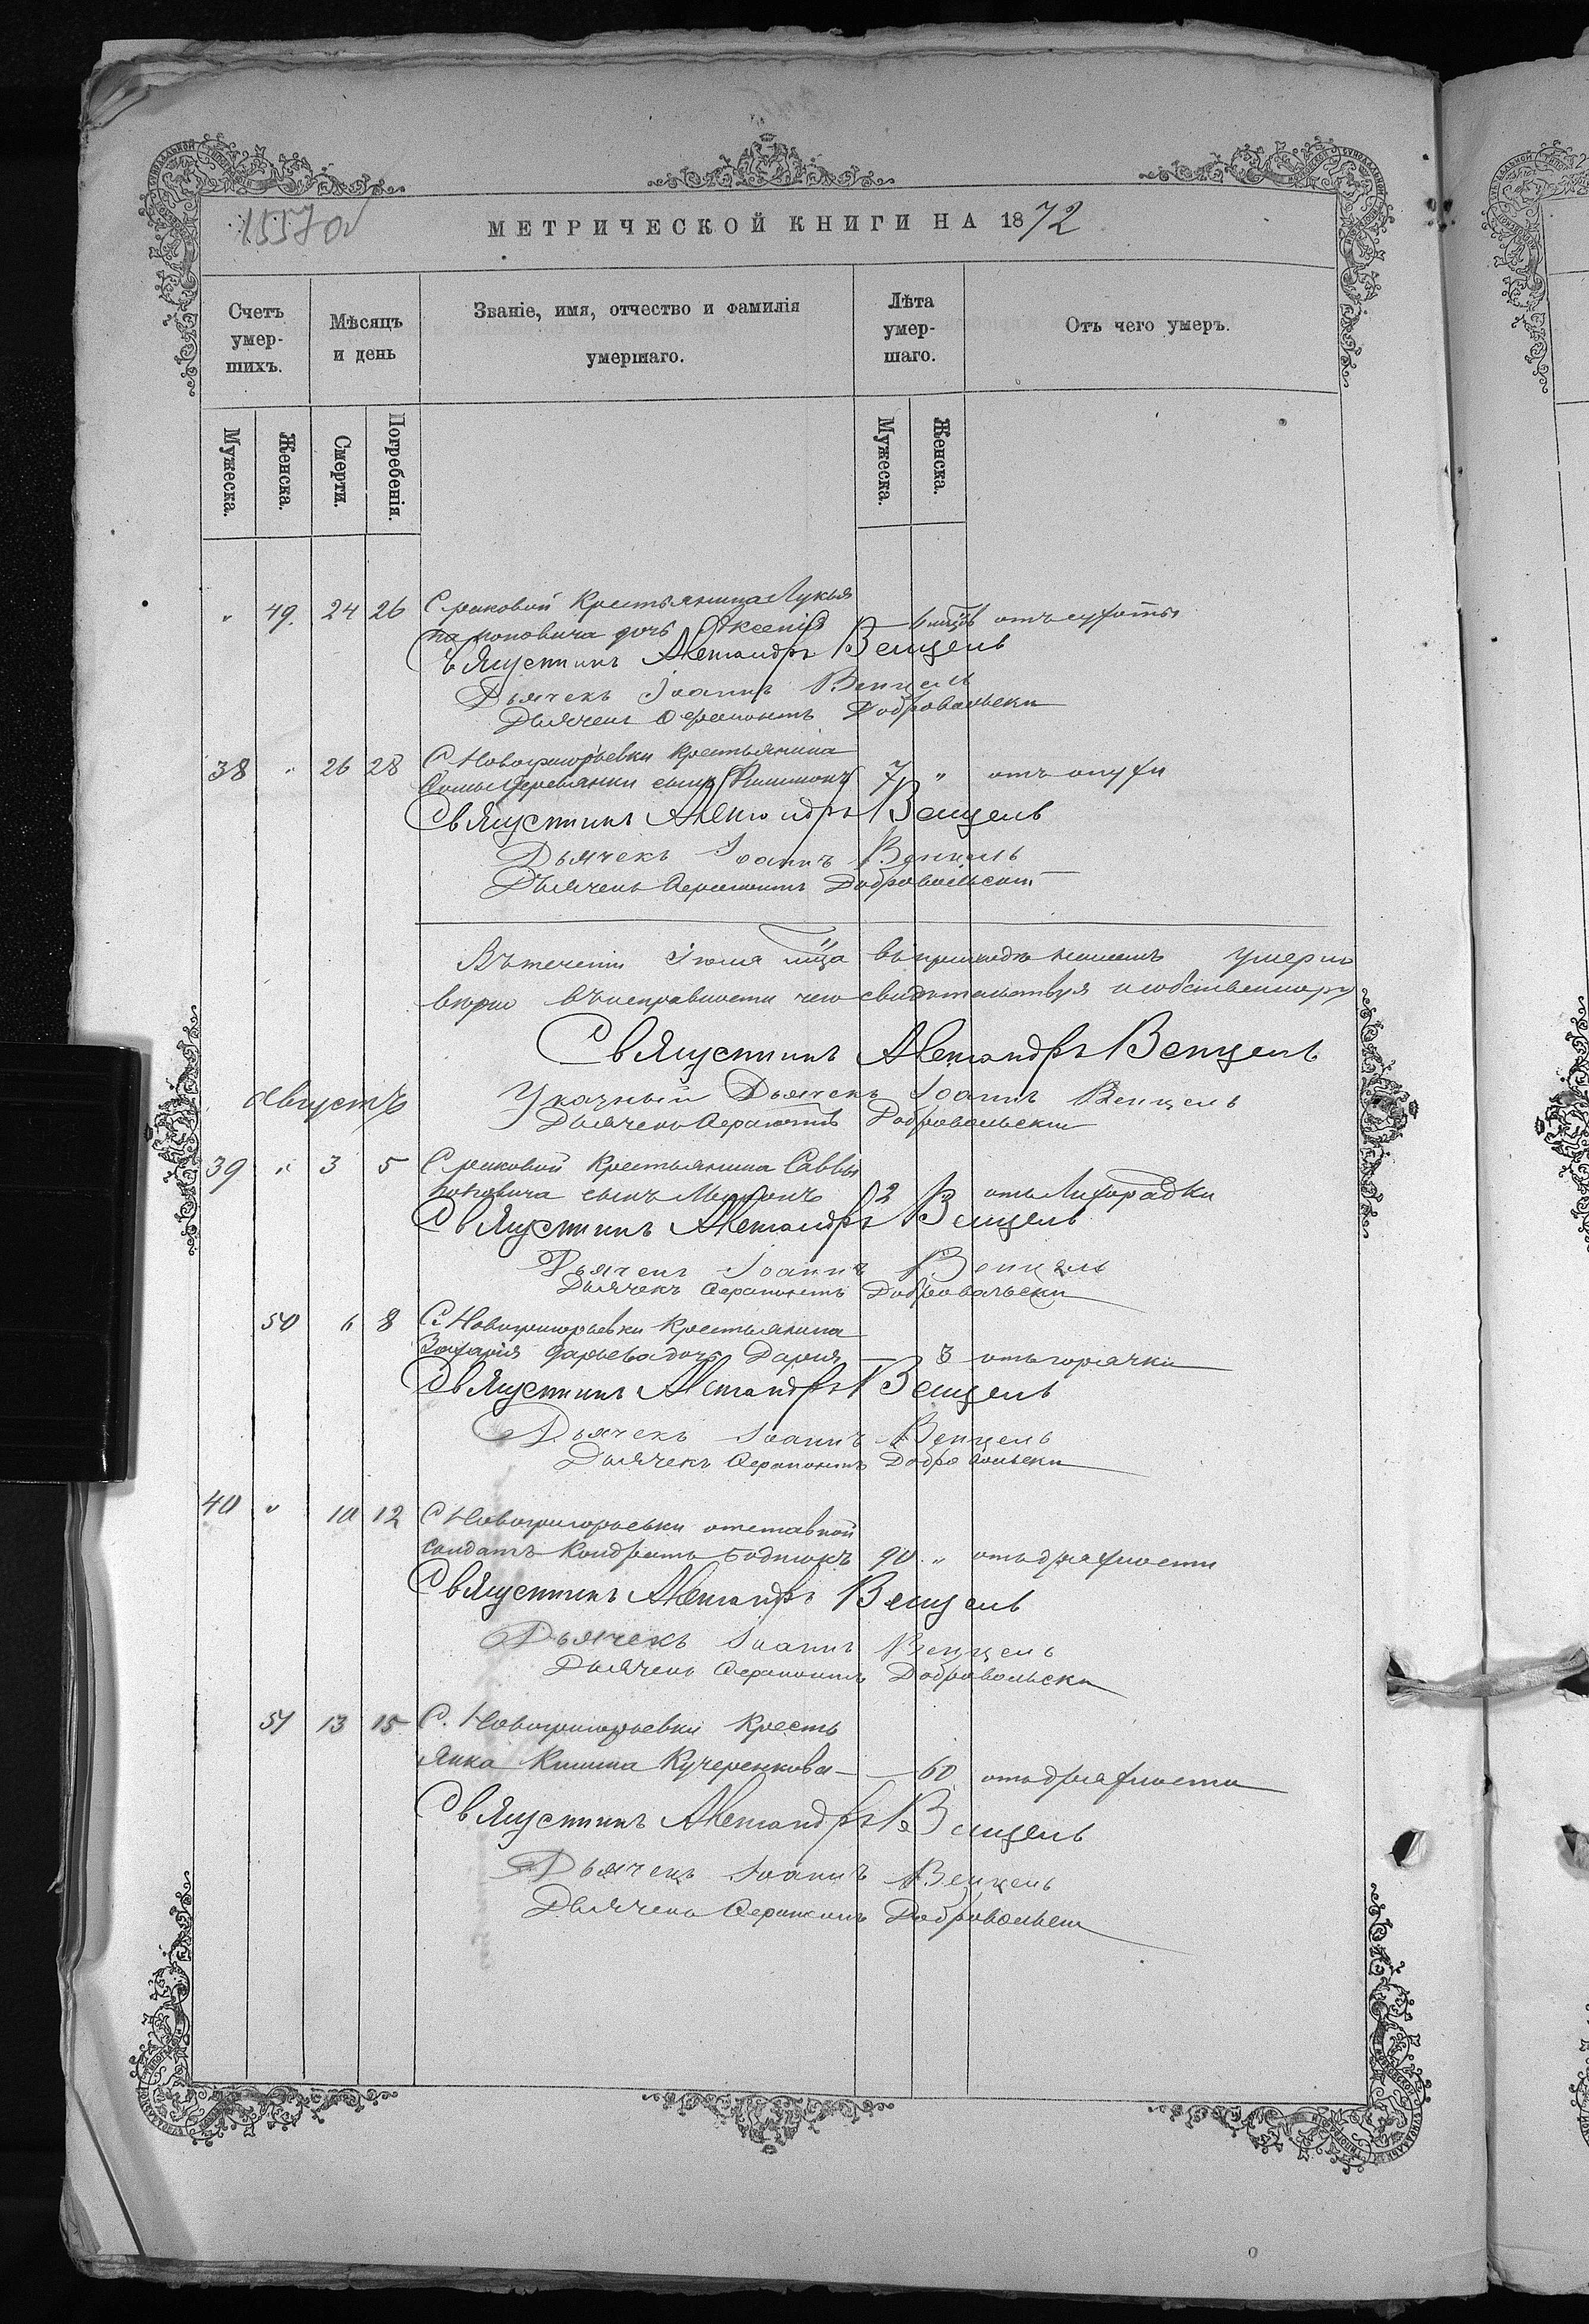 1557 об
МЕТРИЧЕСКОЙ КНИГИ НА 1872
Счетъ умер-шихъ.
Мѣсяцъ и день
Званіе, имя, отчество и фамилія умершаго.
Лѣта умер-шаго.
Отъ чего умеръ.
Мужеска. Женска. Смерти. Погребенія. Мужеска. Женска.
" 49. 24 26 Крестьянина Лукья
на поповича дочь Ксенія отъ сухоты
Священникъ Александръ Венцель
Дьячекъ Іоаннъ Венцель
Дьячекъ Ферапонтъ Добровольски
38 " 26 28 С Новогригорьевки Крестьянина
Фомы Деревянки сынъ Филимонъ 7 " отъ опухи
Священникъ Александръ Венцель
Дьячекъ Іоаннъ Венцель
Дьячекъ Ферапонтъ Добровольскій
Въ теченіи Іюля мца въ приходѣ нашемъ умерли
вѣрно въ исправности чего свидѣтельствуя и собственнору
Священникъ Александръ Венцель
Августъ
Указный Дьячекъ Іоаннъ Венцель
Дьячекъ Ферапонтъ Добровольски
39 " 3 5 Крестьянина Саввы
поповича сынъ Миронъ 2 отъ Лихорадки
Священникъ Александръ Венцель
Дьячекъ Іоаннъ Венцель
Дьячекъ Ферапонтъ Добровольски
50 6 8 С. Новогригорьевки Крестьянина
Захарія дочь Дарія — 3 отъ горячки
Священникъ Александръ Венцель
Дьячекъ Іоаннъ Венцель
Дьячекъ Ферапонтъ Добровольски
40 " 10 12 С Новогригорьевки отставной
солдатъ Кондратъ Боднюкъ 90 " отъ дряхлости
Священникъ Александръ Венцель
Дьячекъ Іоаннъ Венцель
Дьячекъ Ферапонтъ Добровольски
51 13 15 С. Новогригорьевки Кресть
янка Кучеренкова — 60 отъ дряхлости
Священникъ Александръ Венцель
Дьячекъ Іоаннъ Венцель
Дьячекъ Ферапонтъ Добровольски